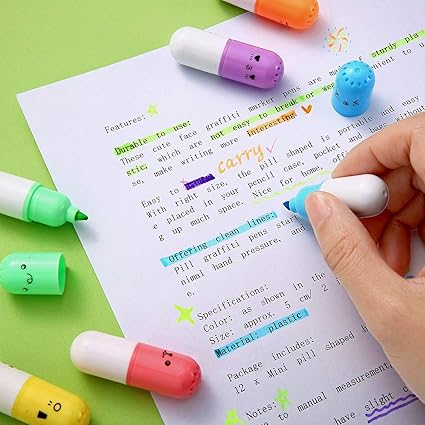 Features:
Durable to use:
These cute face graffiti marker pens are made of sturdy pla
stic, which are not easy to break or wear, convenient to u
se, make writing more Interesting
Easy to carry
With right size, the pill shaped is portable and easy
e placed in your pencil case, pocket and bags without
g up much space. Nice for home, offi
Offering clean lines:
Pill graffiti pens stan
nimal hand pressure, and
e.
Specifications:
Color: as shown in the
Size: approx. 5 cm/ 2 i
Material: plastic
Package includes:
12 x Mini pill shaped h
Notes:
to manual measurement,
have slight c